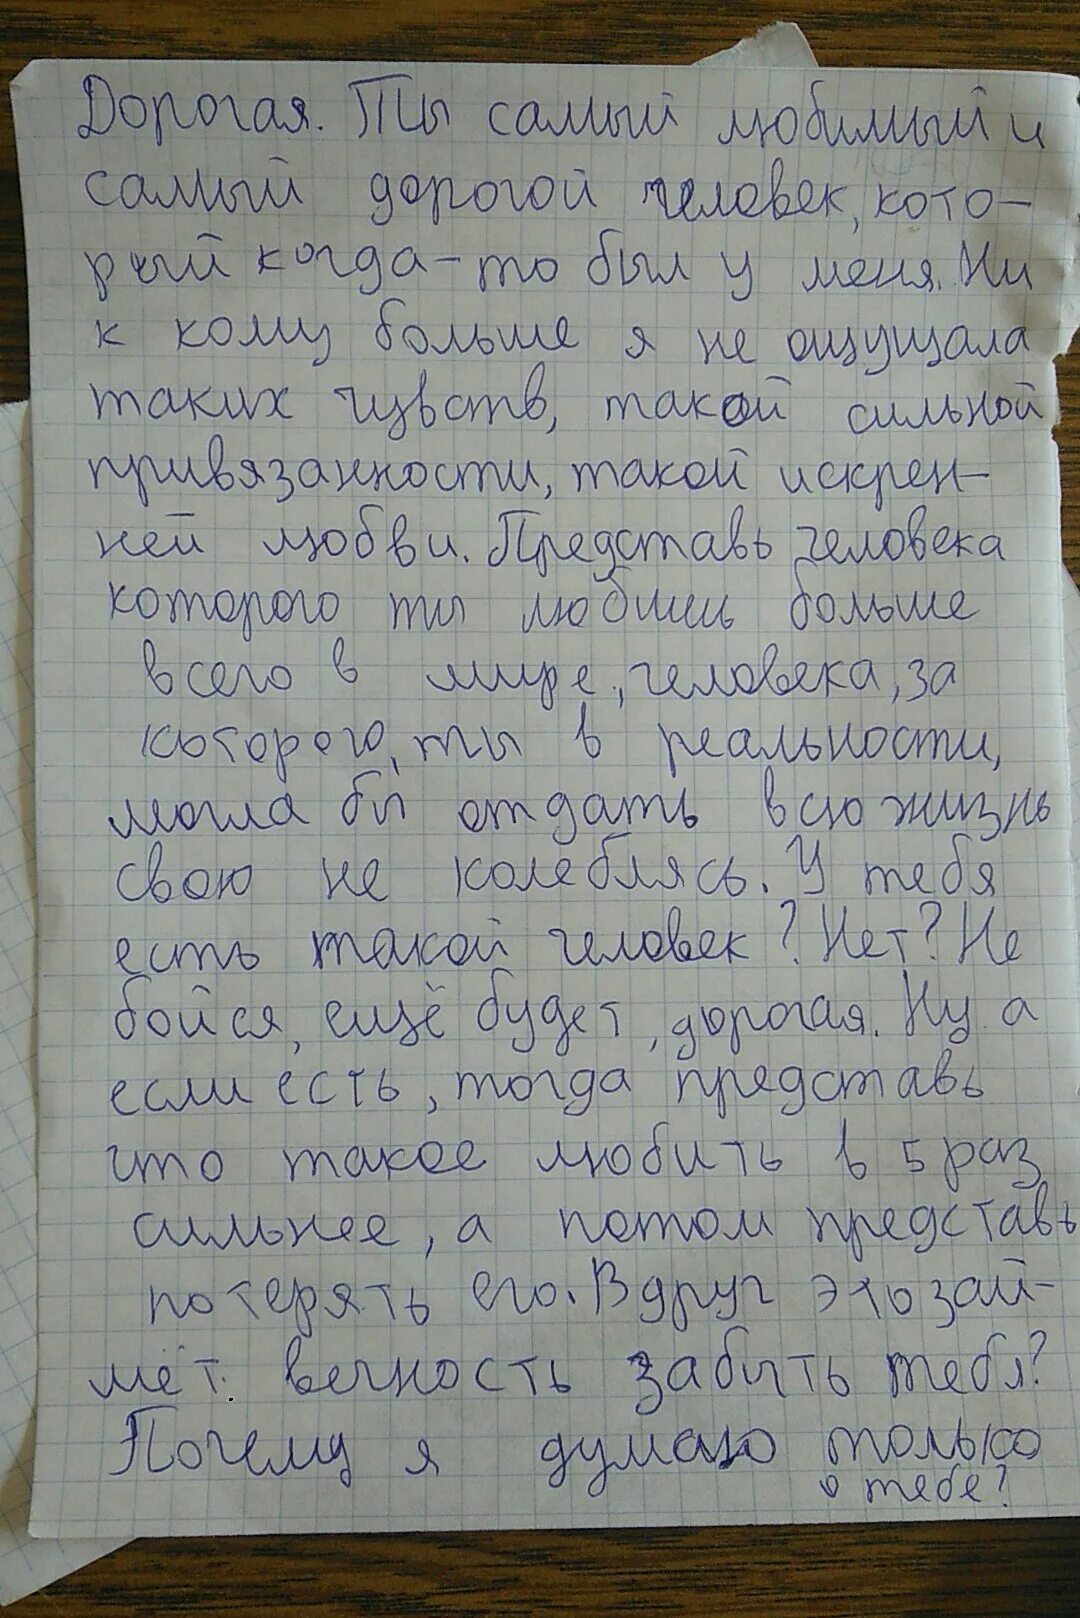 Дорогая. Ты самый любимый и
самый дорогой человек, кото-
рый когда-то был у меня. Ни
к кому больше я не ощущала
таких чувств, такой сильной
привязанности, такой искрен-
ней любви. Представь человека
которого ты любишь больше
всего в мире, человека, за
которого, ты в реальности,
могла бы отдать всю жизнь
свою не колеблясь. У тебя
есть такой человек? Нет? Не
бойся, ещё будет, дорогая. Ну а
если есть, тогда представь
что такое любить в 5 раз
сильнее, а потом представь
потерять его. Вдруг это зай-
мёт вечность забыть тебя?
Почему я думаю только
о тебе?